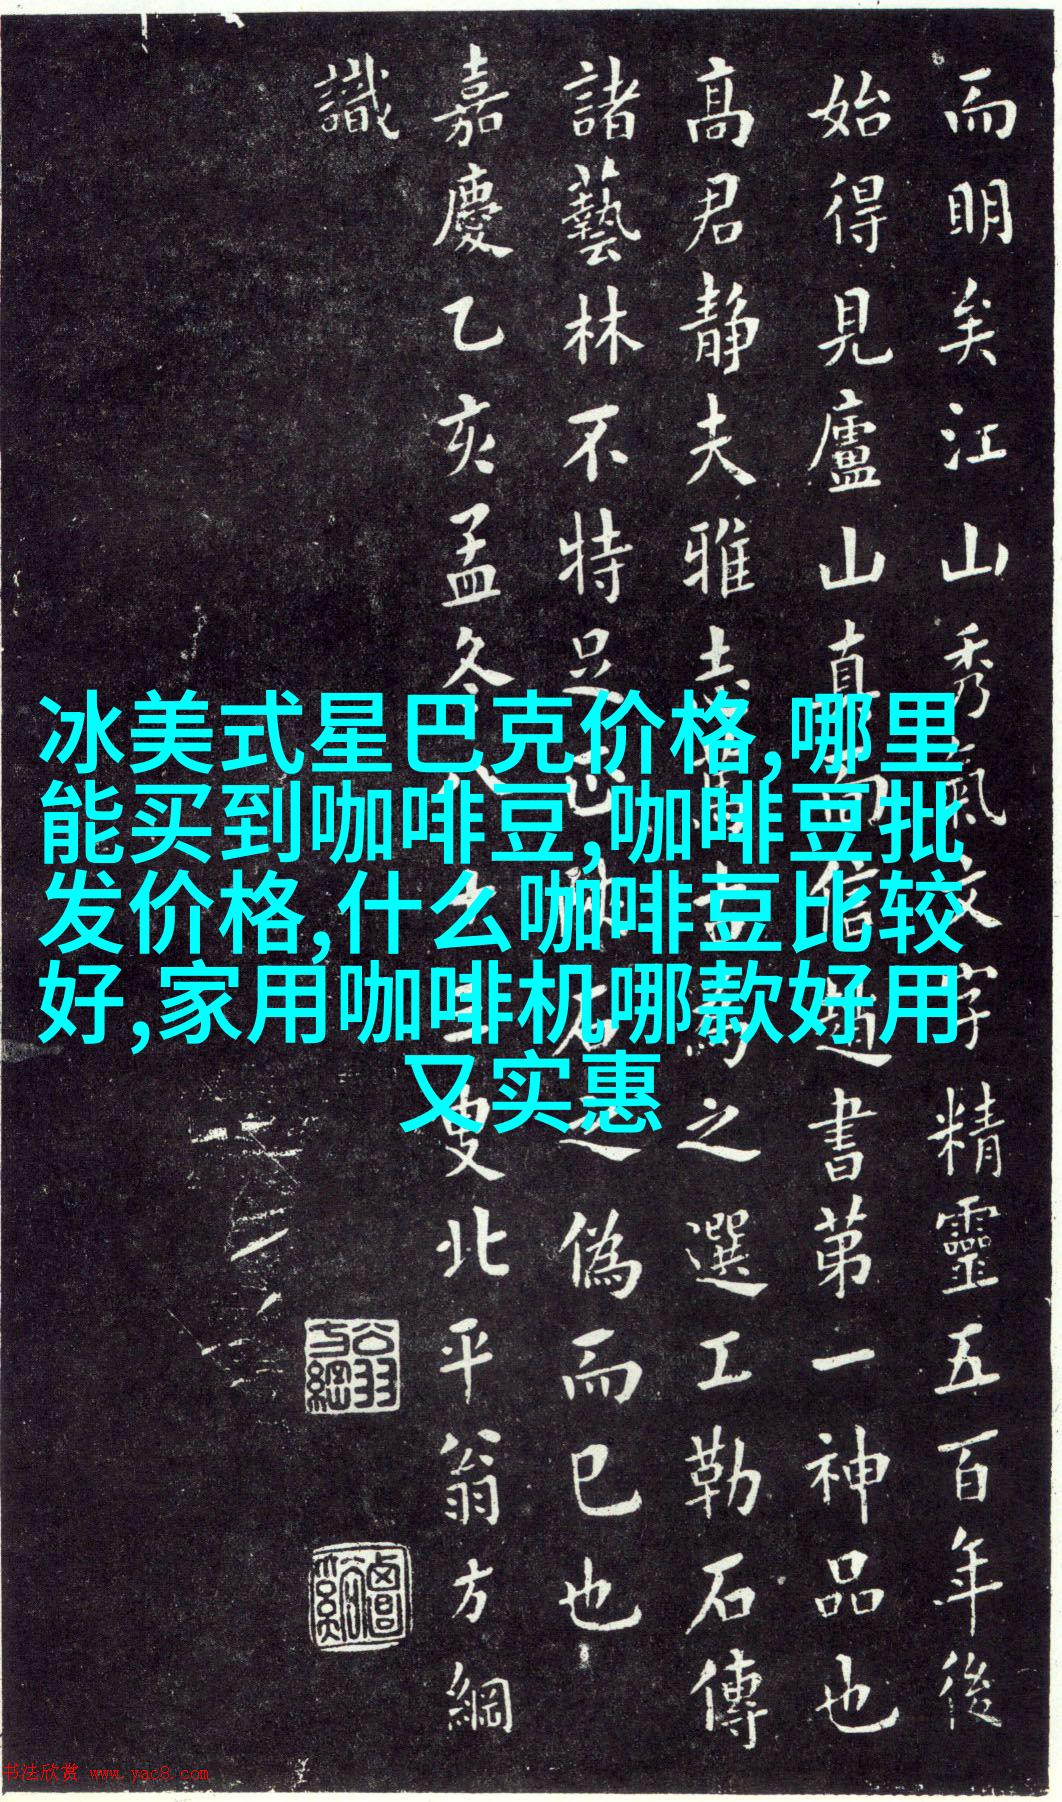 而明矣江山秀氣文字精靈五百年後
始得見廬山真面信迺書第一神品也
高君靜夫雅志嗜古為之選工勒石傳
諸藝林不特足正石之偽而已也
嘉慶乙亥孟冬八叟北平翁方綱
識
冰美式星巴克价格,哪里
能买到咖啡豆,咖啡豆批
发价格,什么咖啡豆比较
好,家用咖啡机哪款好用
又实惠
书法欣赏 www.yac8.com